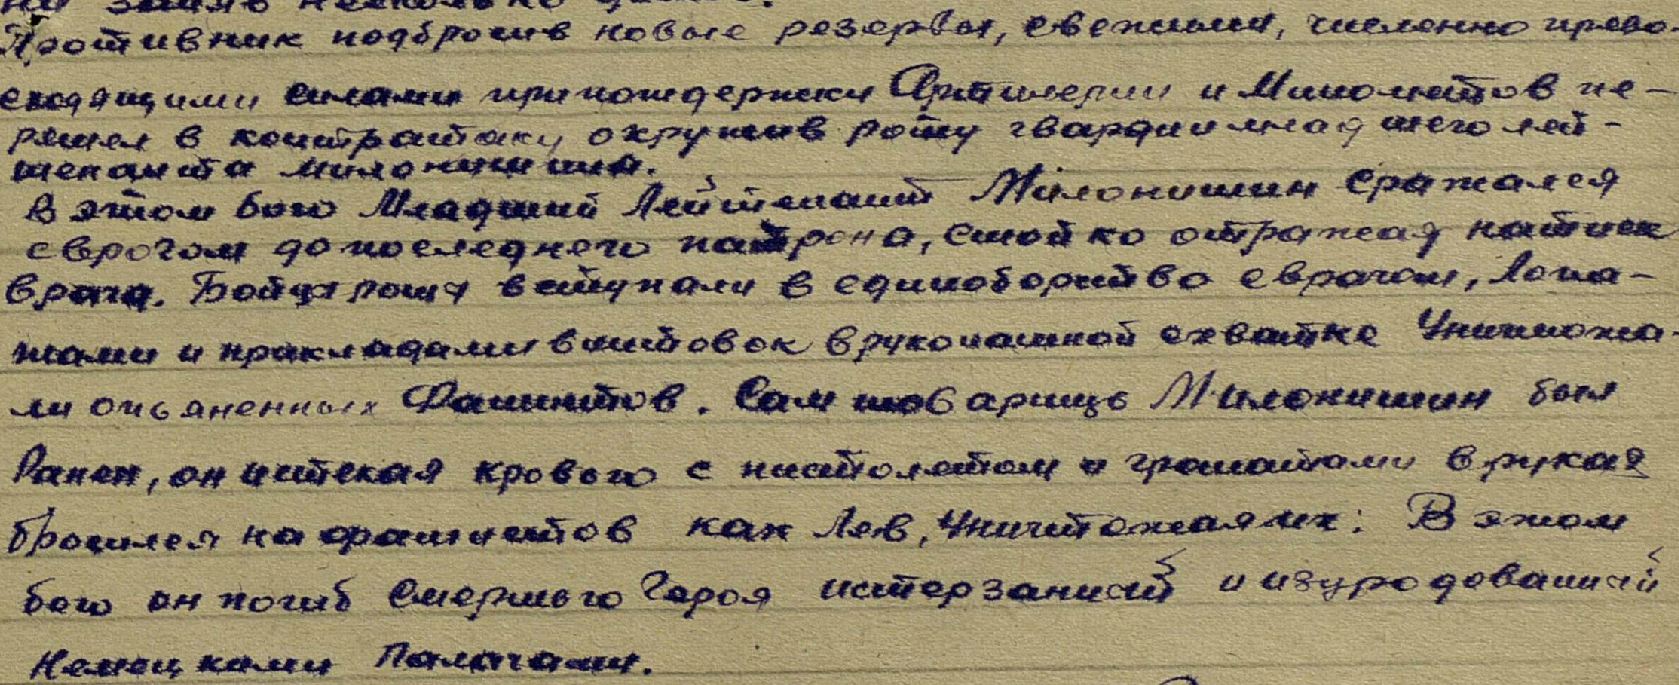 на землю несколько
Противник подбросив новые резервы, свежими, численно прево-
сходящими силами при пождержки Артилерии и Минометов пе-
решел в контратаку окружив роту гвардии младшего лей-
тенанта Милонишин.
В этом бою Младший Лейтенант Милонишин сражался
сврагом до последнего патрона, стойко отражая натиск
врага. Бойцы роты вступали в единоборство сврагом, Лопа-
тами и прикладами винтовок врукопашной схватке Уничтожа-
ли опьяненных Фашистов. Сам товарищь Милонишин был
Ранен, он истекая кровью с пистолетом и гранатами в руках
бросился на фашистов как Лев, Уничтожая их: В этом
бою он погиб Смертью Героя истерзанный и изуродованный
Немецкими Палачами.